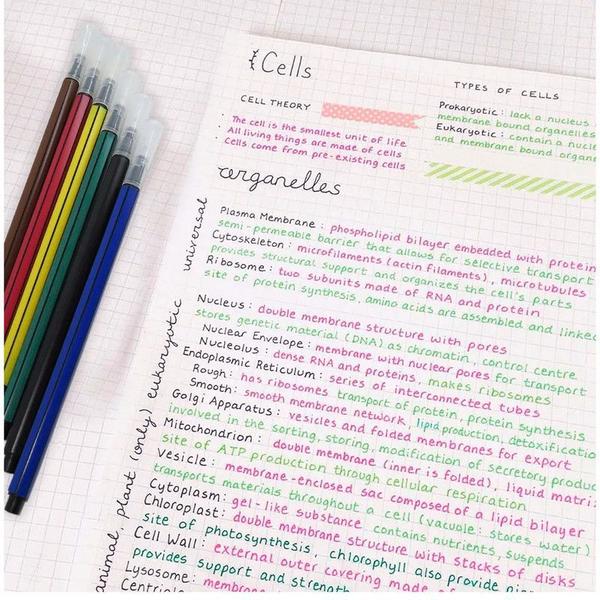 Cells
TYPES OF CELLS
CELL THEORY
Prokaryotic: lack a nucleus
membrane bound organelles
Eukaryotic: contain a
and membrane bound
· The cell is the smallest unit of life
· All living things are made of cells
· Cells come from pre-existing cells
organelles
universal
Plasma Membrane: phospholipid bilayer embedded with protein
semi-permeable barrier that allows for selective transport
Cytoskeleton: microfilaments (actin filaments), microtubules
provides structural support and organizes the cell's parts
Ribosome: two subunits made of RNA and protein
site of protein synthesis, amino acids are assembled and linked
eukaryotic
Nucleus: double membrane structure with pores
stores genetic material (DNA) as chromatin, control centre
Nuclear Envelope: membrane with nuclear pores for transport
Nucleolus: dense RNA and proteins, makes ribosomes
Endoplasmic Reticulum: series of interconnected tubes
Rough: has ribosomes transport of protein, protein synthesis
Smooth: smooth membrane network, lipid production, detoxificatio
Golgi Apparatus: vesicles and folded membranes for export
involved in the sorting, storing, modification of secretory produc
Mitochondrion: double membrane (inner is folded), liquid matri
site of ATP production through cellular respiration
Vesicle: membrane-enclosed sac composed of a lipid bilayer
transports materials throughout a cell (vacuole: stores water)
Cytoplasm: gel-like substance contains nutrients, suspends
animal, plant (only)
Chloroplast: double membrane structure with stacks of disks
site of photosynthesis, chlorophyll also provide
Cell Wall: external outer covering made of
provides support and strength
Lysosome: membran
Centriol